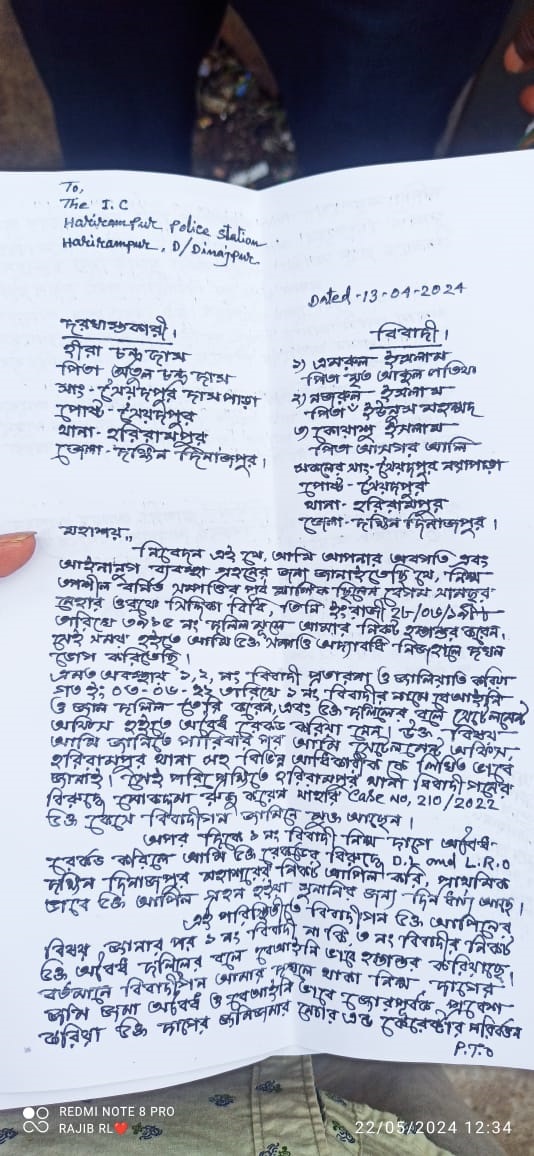 To,
The I.C
Harirampur Police Station
Harirampur, D/Dinajpur.
Dated-13-04-2024
দরখাস্তকারী।
হীরা চন্দ্র দাস
পিতা অতুল চন্দ্র দাস
সাং-সৈয়দপুর দাসপাড়া
পোষ্ট-সৈয়দপুর
থানা-হরিরামপুর
জেলা-দক্ষিন দিনাজপুর।
বিবাদী।
১) এমরুল ইসলাম
পিতা মৃত আব্দুল লতিফ
২) নজরুল ইসলাম
পিতা ইউনুস মহম্মদ
৩) ইসলাম
পিতা আলি
সকলের সাং-সৈয়দপুর নয়াপাড়া
পোষ্ট-সৈয়দপুর
থানা-হরিরামপুর
জেলা-দক্ষিন দিনাজপুর।
মহাশয়,
নিবেদন এই যে, আমি আপনার অবগতি এবং
আইনানুগ ব্যবস্থা গ্রহনের জন্য জানাইতেছি যে, নিম্ন
তপশীল বর্নিত সম্পত্তির পূর্ব মালিক ছিলেন বেগম
মেহার ওরফে সিদ্দিকা বিবি, তিনি ইংরাজী
তারিখে নং দলিল মূলে আমার নিকট হস্তান্তর করেন,
সেই সময় হইতে আমি উক্ত সম্পত্তি অদ্যাবধি নিজহালে দখল
ভোগ করিতেছি।
এমত অবস্থায় ১,২, নং বিবাদী প্রতারণা ও জালিয়াতি করিয়া
গত ইং তারিখে ১ নং বিবাদীর নামে বেআইনি
ও জাল দলিল তৈরি করেন, এবং উক্ত দলিলের বলে সেটেলমেন্ট
অফিস হইতে অবৈধ রেকর্ড করিয়া নেন। উক্ত বিষয়
আমি জানিতে পারিবার পর আমি সেটেলমেন্ট অফিস,
হরিরামপুর থানা সহ বিভিন্ন আধিকারীক কে লিখিত ভাবে
জানাই। সেই পরিপ্রেক্ষিতে হরিরামপুর থানা বিবাদীগনের
বিরুদ্ধে মোকদ্দমা রুজু করেন যাহার Case No, 210/2022
উক্ত কেসে বিবাদীগন জামিনে মুক্ত আছেন।
অপর দিকে ১ নং বিবাদী নিম্ন দাগে অবৈধ
রেকর্ড করিলে আমি উক্ত রেকর্ডের বিরুদ্ধে D.L and L.R.O
দক্ষিন দিনাজপুর মহাশয়ের নিকট আপিল করি, প্রাথমিক
ভাবে উক্ত আপিল গ্রহন হইয়া শুনানির জন্য দিন ধার্য্য আছে।
এই পরিস্থিতিতে বিবাদীগন উক্ত আপিলের
বিষয় জানার পর ১ নং বিবাদী না কি ৩ নং বিবাদীর নিকট
উক্ত অবৈধ দলিলের বলে বেআইনি ভাবে হস্তান্তর করিয়াছে।
বর্তমানে বিবাদীগন আমার দখলে থাকা নিম্ন দাগের
জমি জমা অবৈধ ও বেআইনি ভাবে জোরপূর্বক প্রবেশ
করিয়া উক্ত দাগের জমিজমার নেচার এন্ড কেরেক্টার পরিবর্তন
P.T.O
REDMI NOTE 8 PRO
RAJIB RL❤️
22/05/2024 12:34